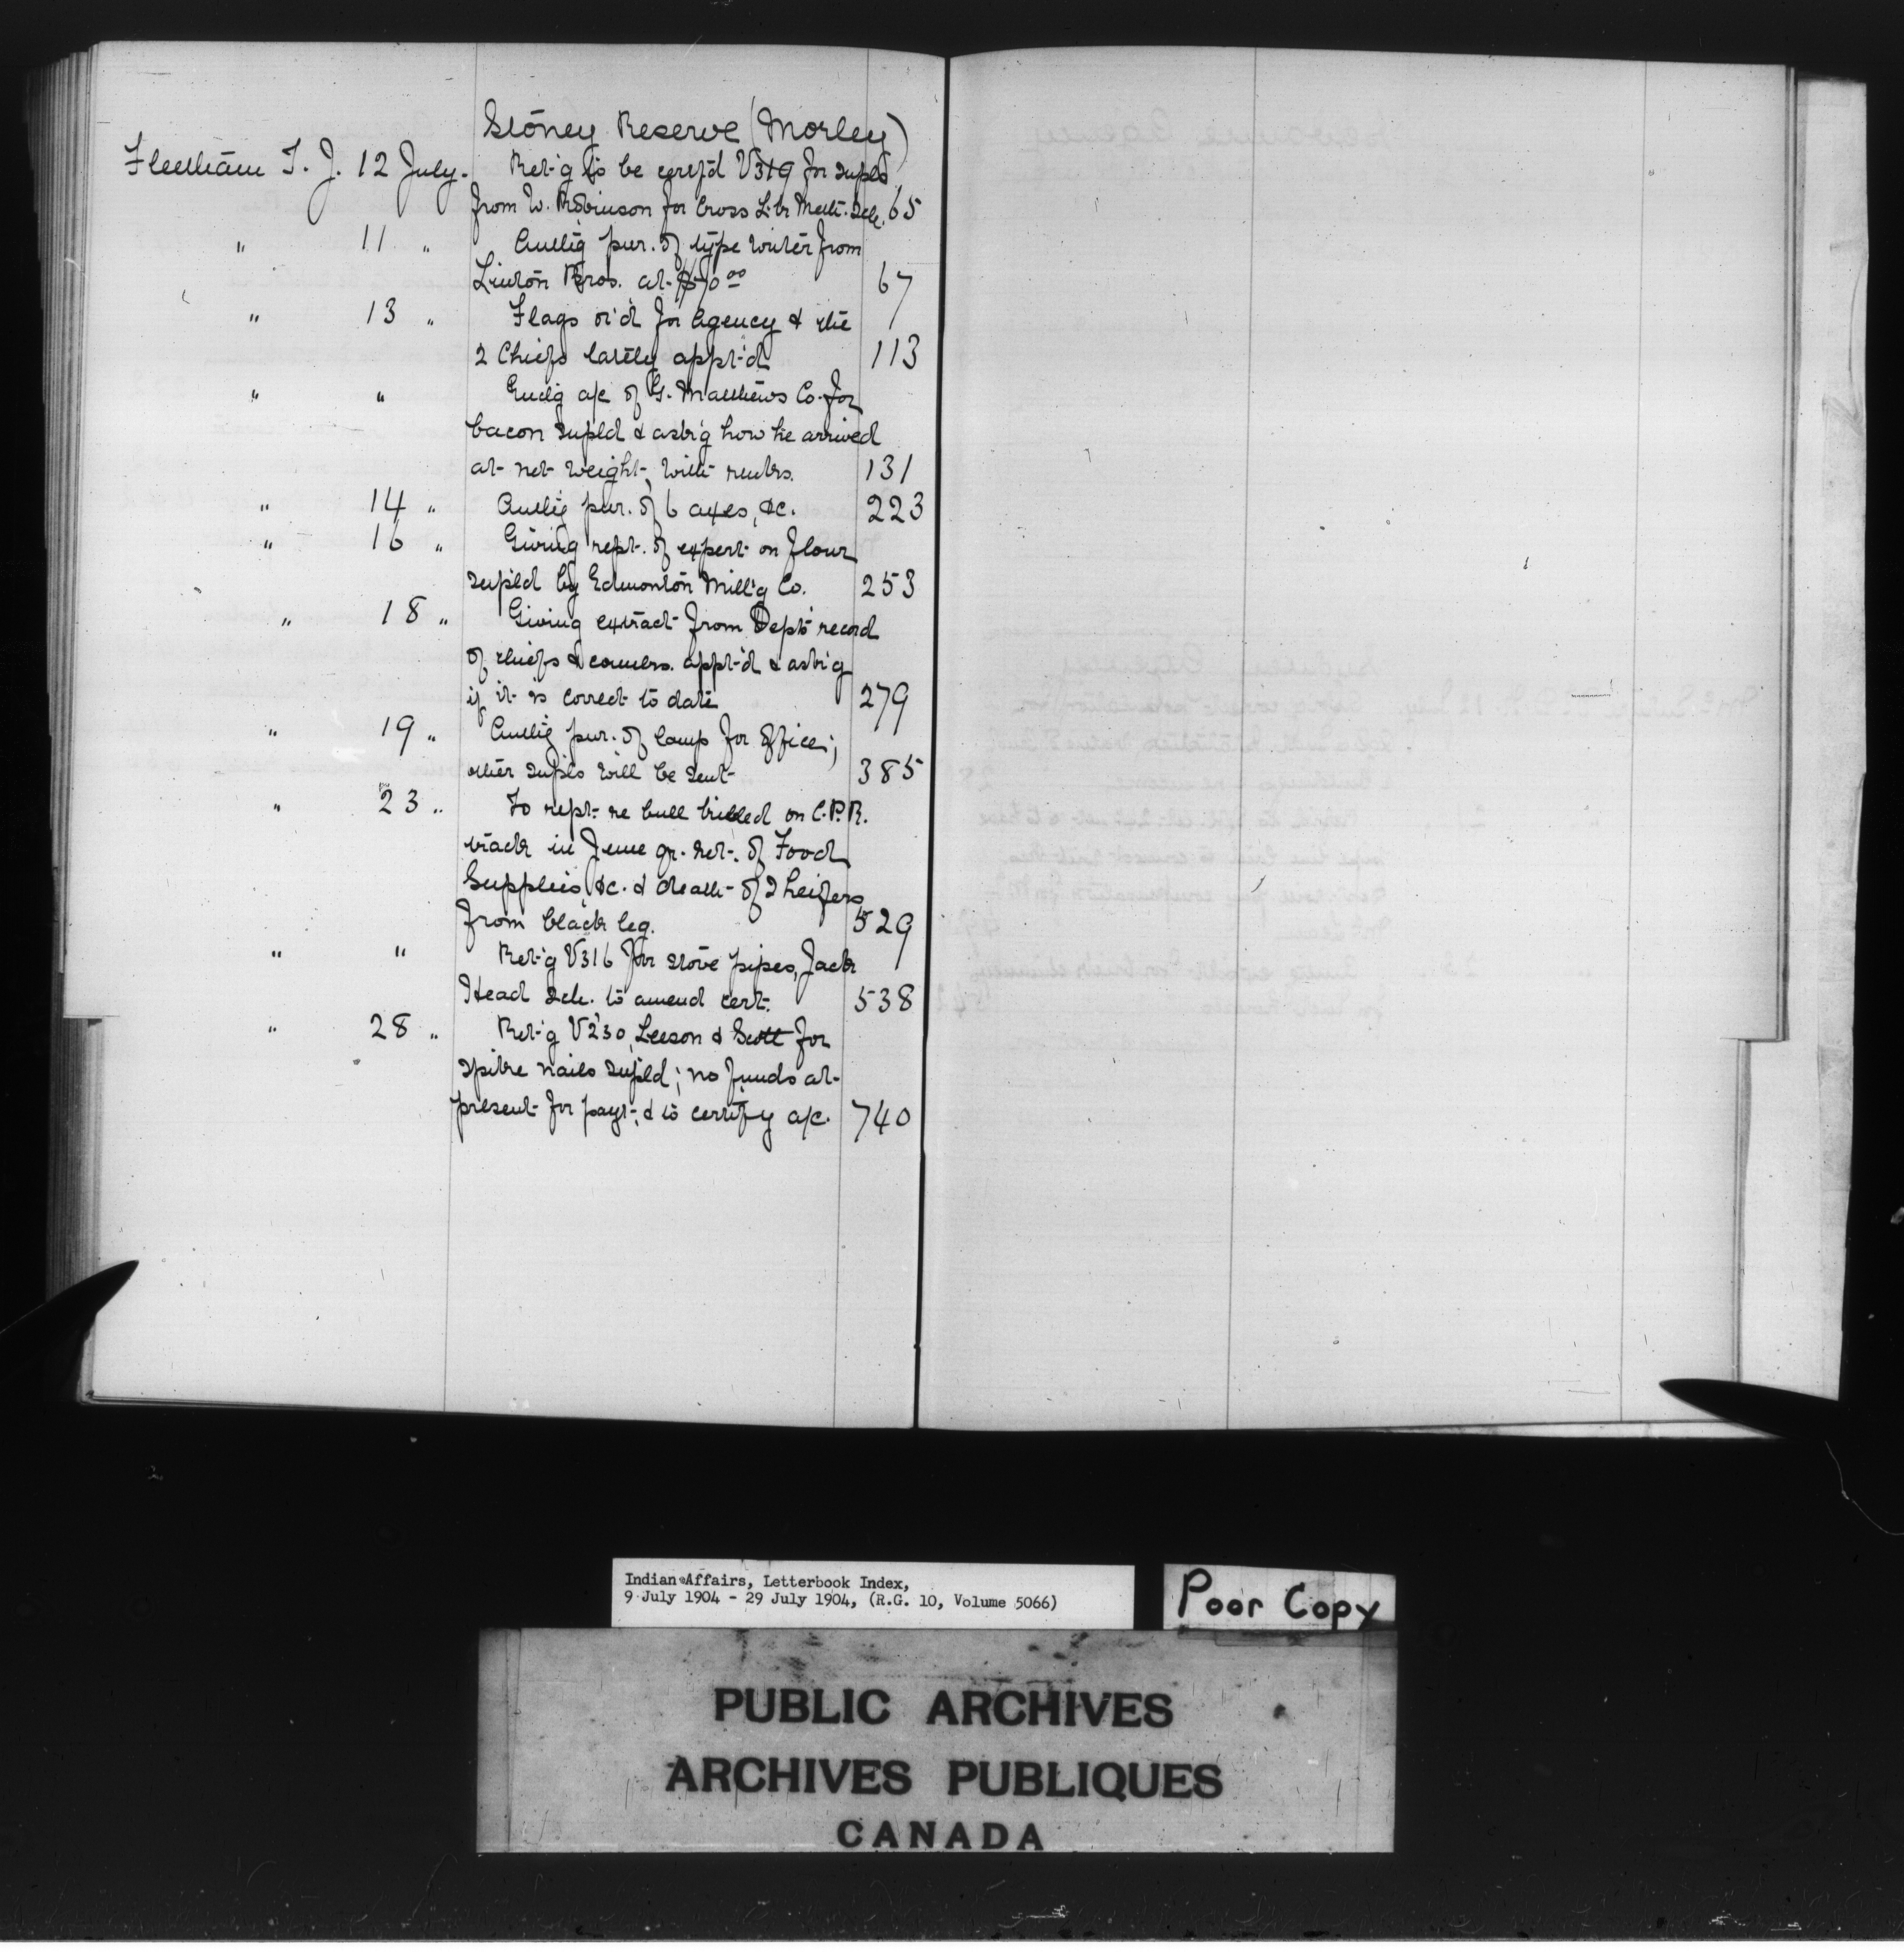 Stoney Reserve (Morley)
Fleetham T. J. 12 July. Ret'g to be certf'd V319 for supls
from W. Robinson for Cross L. Br Meth. Sch. 65
" 11 " Auth'g pur. of type writer from
Linton Bros. at $70 00 67
" 13 " Flags or'd for Agency & the
2 Chiefs lately appt'd 113
" " Encl'g a/c of G. Matthews Co. for
bacon supld & ask'g how he arrived
at net weight, with rmks. 131
" 14 " Auth'g pur. of 6 axes, &c. 223
" 16 " Giving rept. of expert on flour
supld by Edmonton Mill'g Co. 253
" 18 " Giving extract from Dept's record
of chiefs & counlrs. appt'd & ask'g
if it is correct to date 279
" 19 " Auth'g pur. of lamp for office;
other supls will be sent 385
" 23 " To rept. re bull killed on C.P.R.
track in June qr. ret. of Food
Supplies, &c. & death of 2 heifers
from black leg. 529
" " Ret'g V316 for stove pipes, Jack
Head Sch. to amend cert. 538
" 28 " Ret'g V230, Leeson & Scott for
spike nails supld; no funds at
present for payt, & to certify a/c. 740
Indian Affairs, Letterbook Index,
9 July 1904 - 29 July 1904, (R.G. 10, Volume 5066)
Poor Copy
PUBLIC ARCHIVES
ARCHIVES PUBLIQUES
CANADA